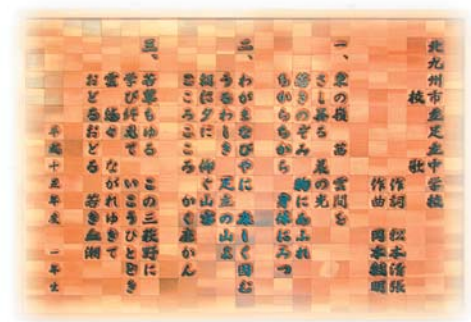 北九州市立足立中学校
校歌
作詞 松本清張
作曲 岡本敏明
一、東の 雲間を
さし 光
若きのぞみ 胸にあふれ
ちからちから 身体にみつ
二、わがまなびやに 囲む
うるわしき 足立の山よ
朝に夕に 仰ぐ山
こころこころ かく磨かん
三、若草もゆる この三萩野に
学び終えて いこうひととき
雲 ながれゆきて
おどるおどる 若き血潮
平成十五年度 一年生